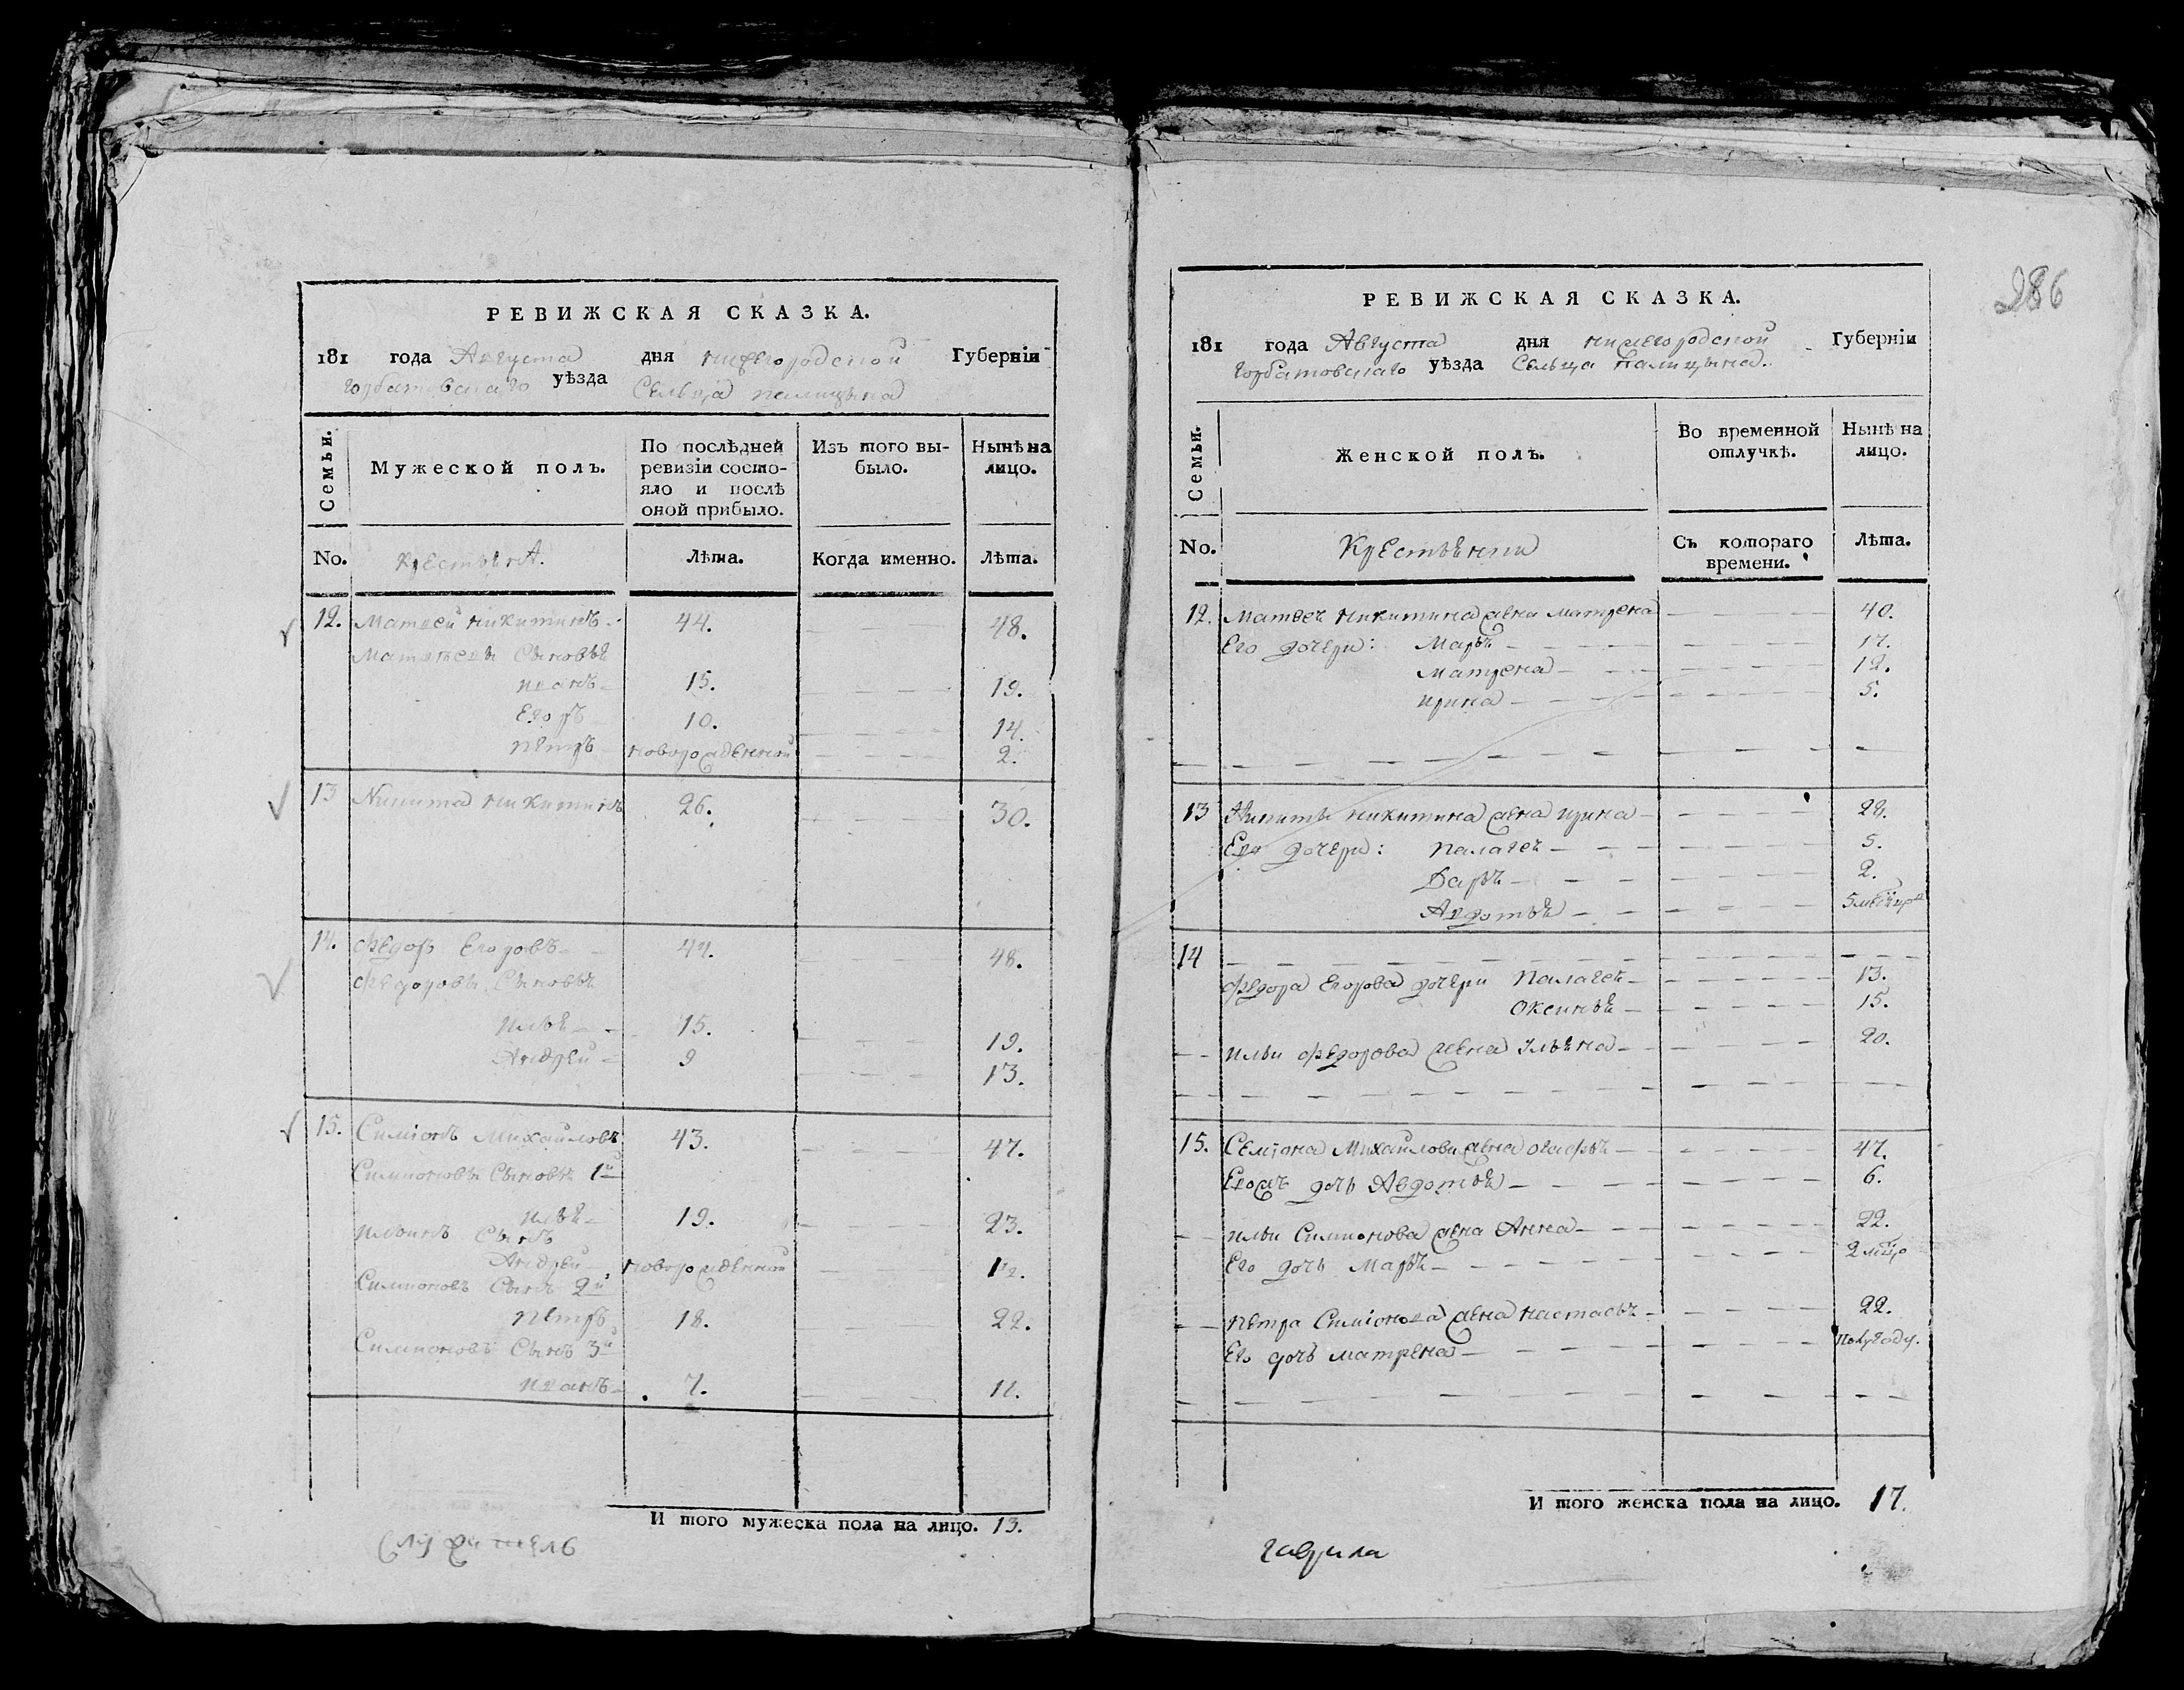 РЕВИЖСКАЯ СКАЗКА.
181 года Августа дня нижегородской Губерніи
горбатовскаго уѣзда Сельца палицына
Семьи.
Мужеской полъ.
По послѣдней ревизіи состояло и послѣ оной прибыло.
Изъ того выбыло.
Нынѣ на лицо.
No.
Лѣта.
Когда именно.
Лѣта.
12. Матвей никитинъ 44. 48.
Матвѣевы Сыновья
иванъ 15. 19.
Егоръ 10. 14.
петръ новорожденной 2.
13 Никита никитинъ 26. 30.
14. Федоръ Егоровъ 44. 48.
Федоровы Сыновья
илья 15. 19.
Андрей 9 13.
15. Симіонъ Михайловъ 43. 47.
Симионовы Сыновья 1й
илья 19. 23.
ильинъ Сынъ
Андрей новорожденной
Симионовъ Сынъ 2й
петръ 18. 22.
Симионовъ Сынъ 3й
иванъ 7. 11.
И того мужеска пола на лицо. 13.
Служитель
286
РЕВИЖСКАЯ СКАЗКА.
181 года Августа дня нижегородской Губерніи
горбатовскаго уѣзда Сельца палицына.
Семьи.
Женской полъ.
Во временной отлучкѣ.
Нынѣ на лицо.
No.
Съ котораго времени.
Лѣта.
12. Матвея никитина жена матрена 40.
Его дочери: Марья 17.
матрена 12.
ирина 5.
13 Никиты никитина жена ирина
Его дочери: палагея 5.
Дарья 2.
Авдотья
14
Федора Егорова дочери палагея 13.
Оксинья 15.
ильи федорова жена 20.
15. Семіона Михайлова жена 47.
дочь Авдотья 6.
ильи Симионова жена Анна 22.
Его дочь Марья
петра Симіонова жена настасья 22.
Его дочь матрена полугоду.
И того женска пола на лицо. 17.
гаврила